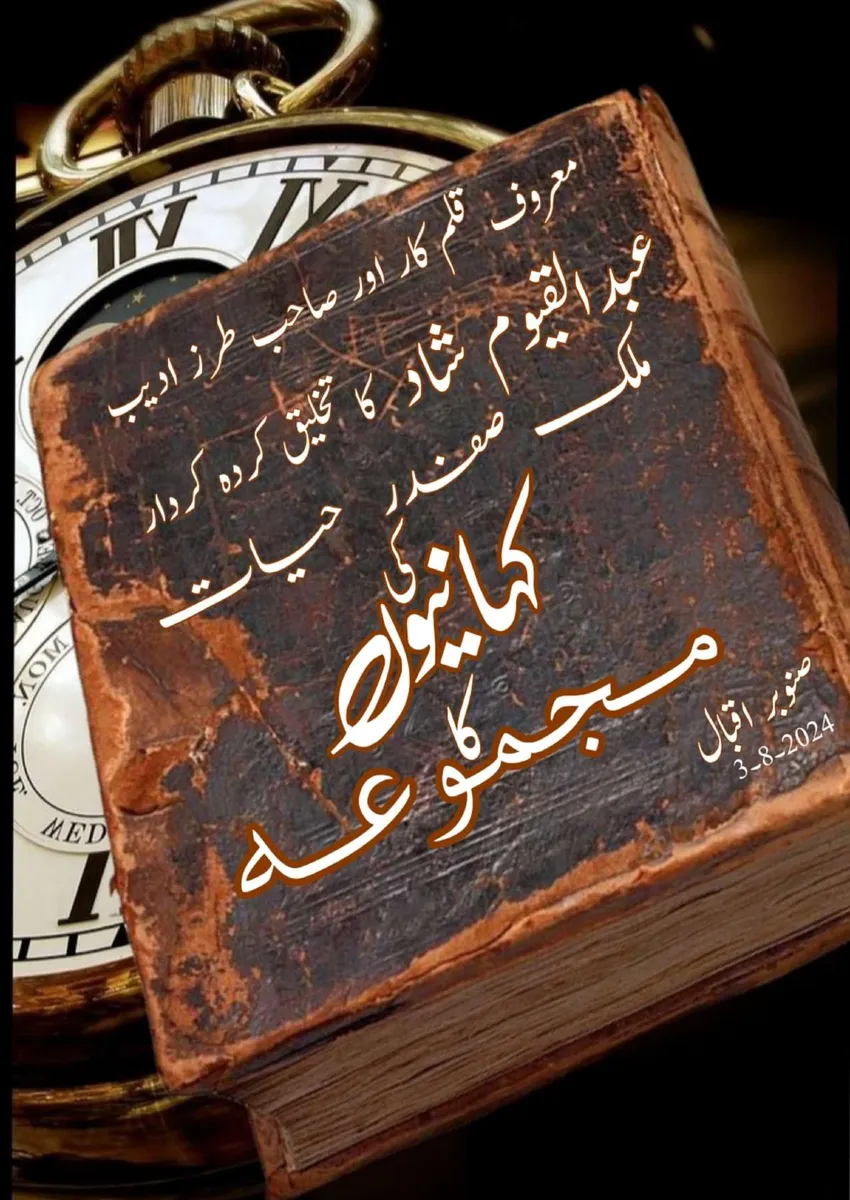 معروف قلم کار اور صاحب طرز ادیب
عبدالقیوم شاد کا تخلیق کردہ کردار
ملک صفدر حیات
کی
کہانیوں
کا
مجموعہ
صنوبر اقبال
3-8-2024
OCT.
MON.
WED